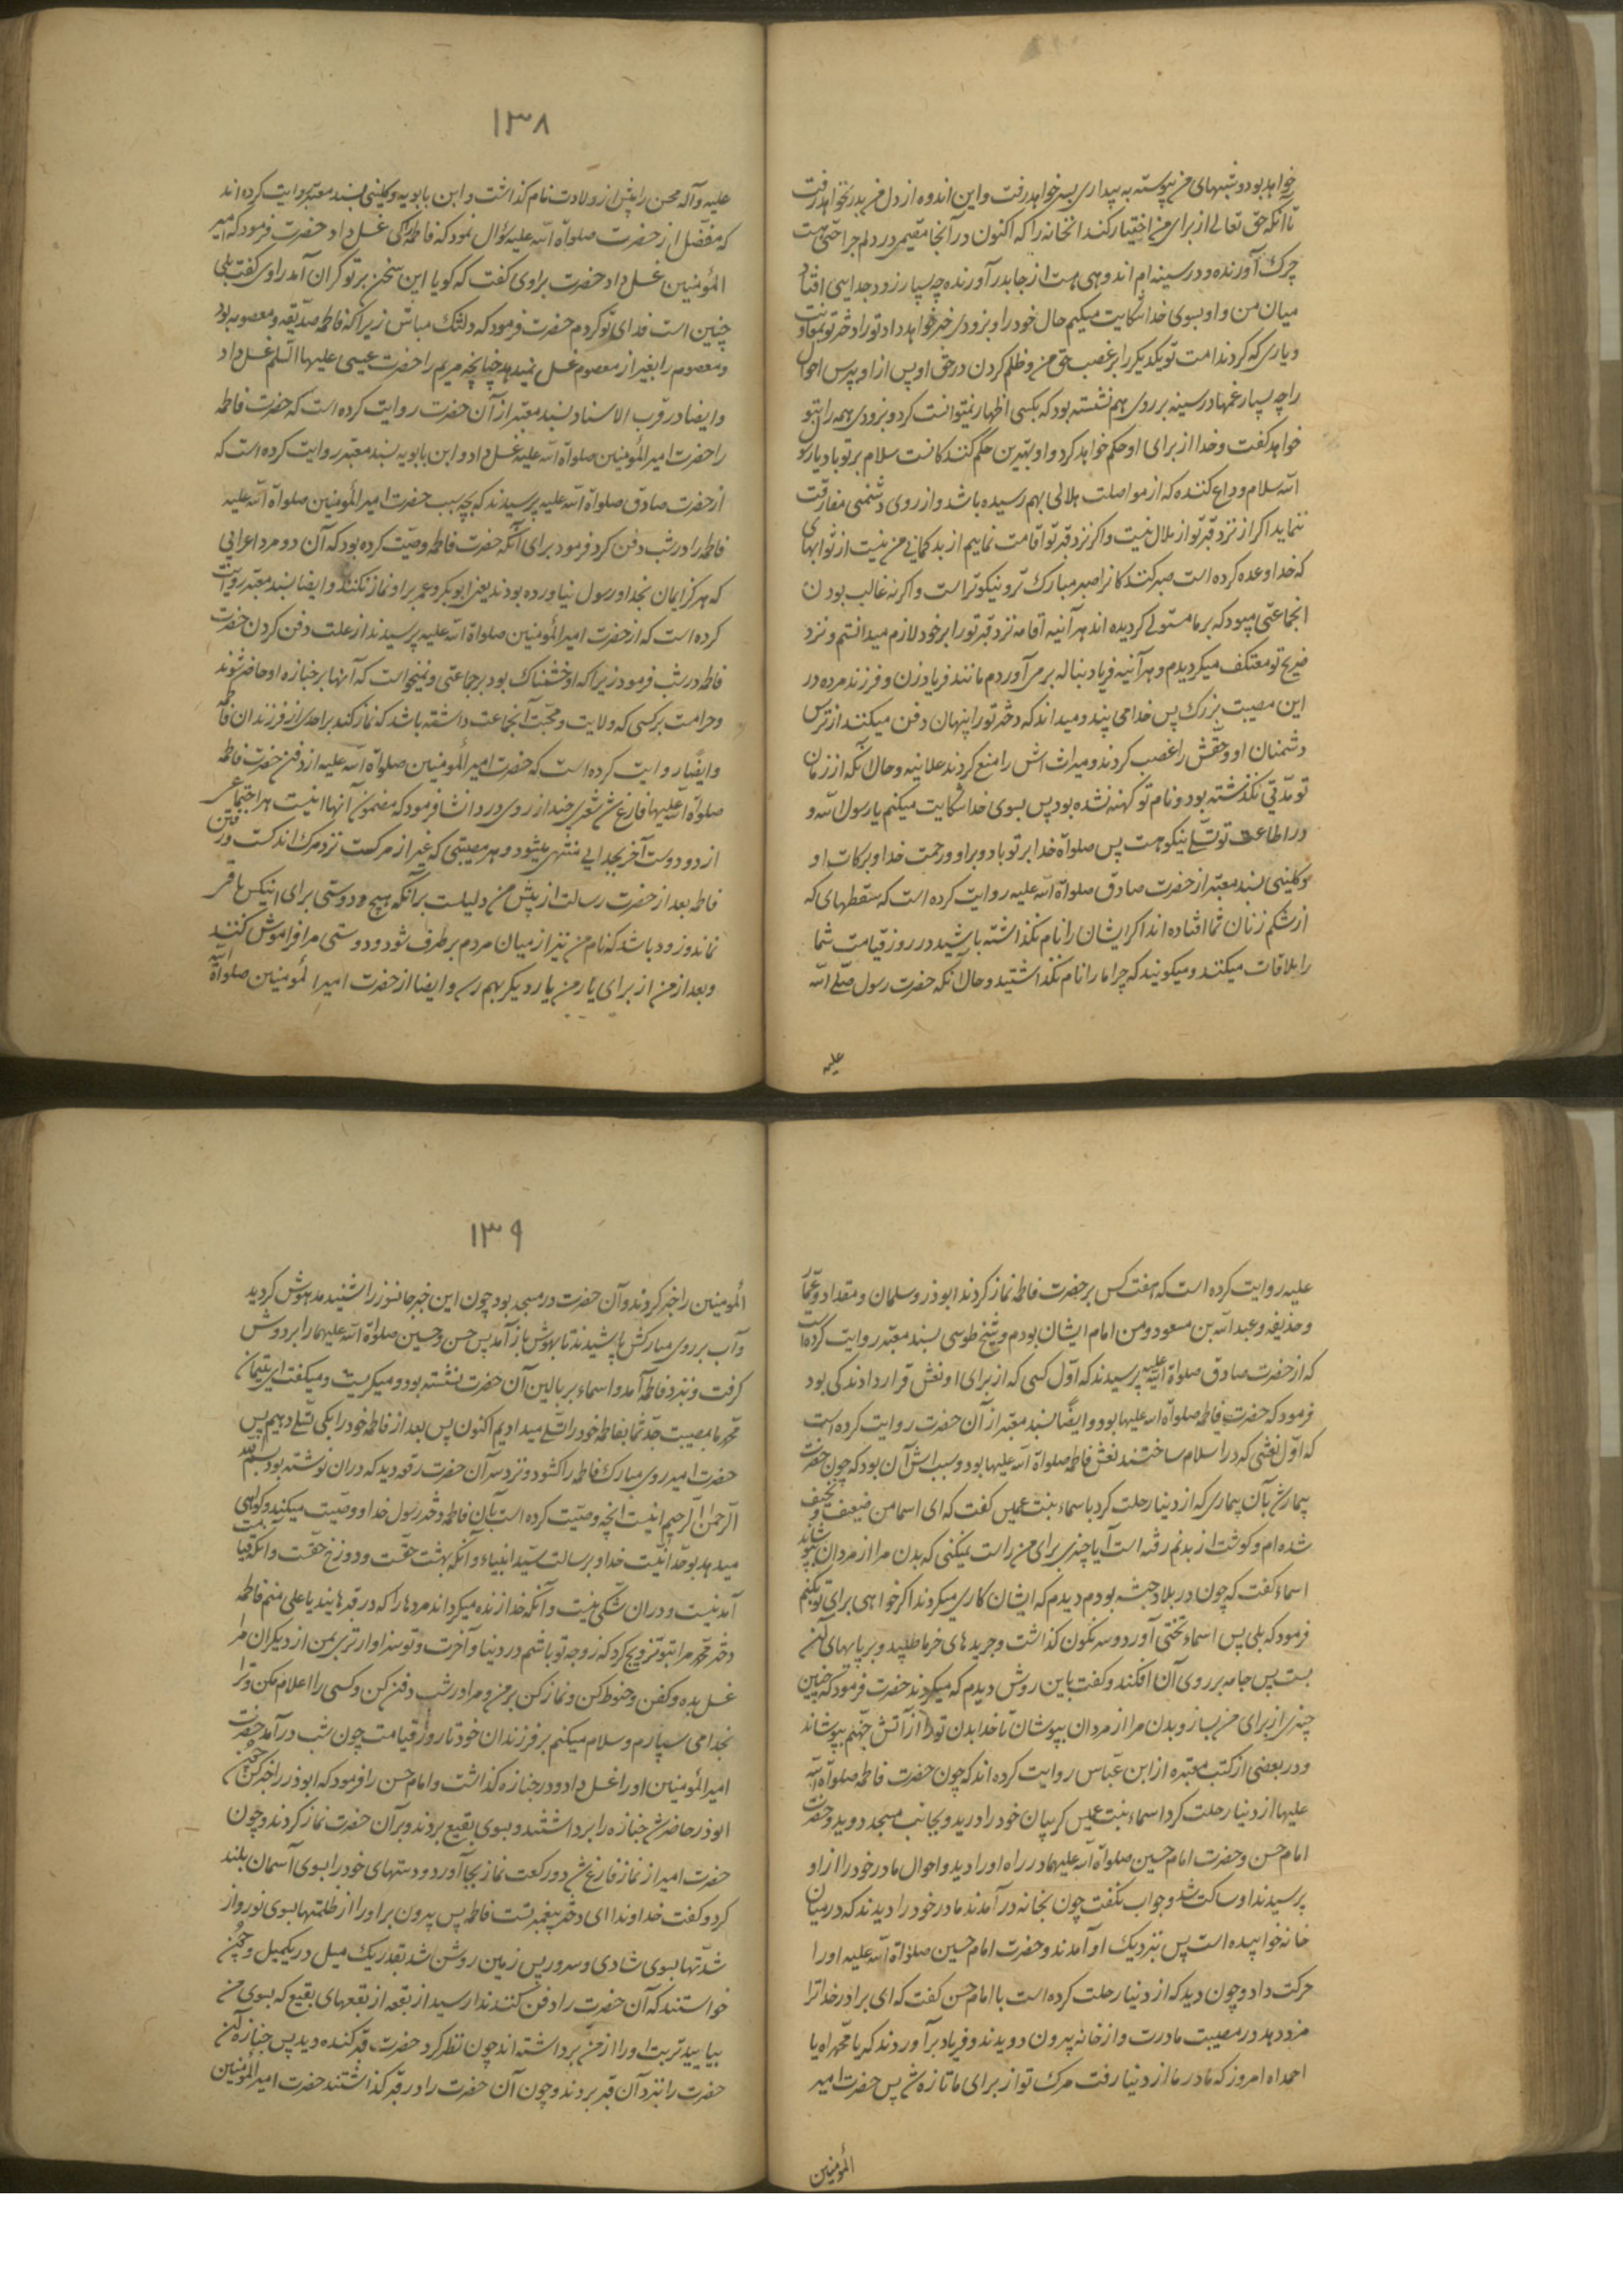 خواهد بود و شبهای من پیوسته به بیداری بسر خواهد رفت و این اندوه از دل من بدر نخواهد رفت
تا آنکه حق تعالی از برای من اختیار کند آنخانه را که اکنون در آنجا مقیمی در دلم جراحتی هست
چرک آورنده و در سینه ام اندوهی هست از جا بدر آورنده چه بسیار زود جدایی افتاد
میان من و او بسوی خدا شکایت میکنم حال خود را و بزودی خبر خواهد داد تو را دختر تو بمعاونت
و یاری که کردند امت تو یکدیگر را بر غصب حق من و ظلم کردن در حق او پس از او بپرس احوال
را چه بسیار غمها در سینه بر روی هم نشسته بود که بکسی اظهار نمیتوانست کرد و بزودی همه را بتو
خواهد گفت و خدا از برای او حکم خواهد کرد و او بهترین حکم کنندکانست سلام بر تو باد یا رسول
الله سلام وداع کننده که از مواصلت ملالی بهم رسیده باشد و از روی دشمنی مفارقت
ننماید اکر از نزد قبر تو از ملال نیست و اکر نزد قبر تو اقامت نمایم از بدکمانی من نیست از ثوابهای
که خدا وعده کرده است صبر کنندکانرا صبر مبارک تر و نیکوتر است و اکر نه غالب بودن
انجماعتی میبود که بر ما مستولی کردیده اند هر آنیه اقامه نزد قبر تو را بر خود لازم میدانستم و نزد
ضریح تو معتکف میکردیدم و هر آنیه فریاد بناله بر می آوردم مانند فریاد زن و فرزند مرده در
این مصیبت بزرک پس خدا می بیند و میداند که دختر تو را پنهان دفن میکنند از ترس
دشمنان او و حقش را غصب کردند و میراث اش را منع کردند علانیه و حال آنکه از زمان
تو مدتی نکذشته بود و نام تو کهنه نشده بود پس بسوی خدا شکایت میکنم یا رسول الله و
در اطاعت تو تسلی نیکو هست پس صلوة خدا بر تو باد و بر او و رحمت خدا و برکات او
و کلینی بسند معتبر از حضرت صادق صلوة الله علیه روایت کرده است که سقطهای که
از شکم زنان شما افتاده اند اکر ایشان را نام نکذاشته باشید در روز قیامت شما
را ملاقات میکنند و میکویند که چرا ما را نام نکذاشتید و حال آنکه حضرت رسول صلی الله
علیه
١٣٨
علیه و آله محسن را پیش از ولادت نام کذاشت و ابن بابویه و کلینی بسند معتبر روایت کرده اند
که مفضل از حضرت صلوة الله علیه سؤال نمود که فاطمه را کی غسل داد حضرت فرمود که امیر
المؤمنین غسل داد حضرت براوی کفت که کویا این سخن بر تو کران آمد راوی کفت بلی
چنین است فدای تو کردم حضرت فرمود که دلتنک مباش زیرا که فاطمه صدیقه و معصومه بود
و معصوم را بغیر از معصوم غسل نمیدهد چنانچه مریم را حضرت عیسی علیها السلم غسل داد
و ایضا در قرب الاسناد بسند معتبر از آن حضرت روایت کرده است که حضرت فاطمه
را حضرت امیر المؤمنین صلوة الله علیه غسل داد و ابن بابویه بسند معتبر روایت کرده است که
از حضرت صادق صلوة الله علیه پرسیدند که بچه سبب حضرت امیر المؤمنین صلوة الله علیه
فاطمه را در شب دفن کرد فرمود برای آنکه حضرت فاطمه وصیت کرده بود که آن دو مرد اعرابی
که هرکز ایمان بخدا و رسول نیاورده بودند یعنی ابوبکر و عمر بر او نماز نکنند و ایضا بسند معتبر روایت
کرده است که از حضرت امیر المؤمنین صلوة الله علیه پرسیدند از علت دفن کردن حضرت
فاطمه در شب فرمود زیرا که او خشمناک بود بر جماعتی و نمیخواست که آنها بر جنازه او حاضر شوند
و حرامست بر کسی که ولایت و محبت آنجماعت داشته باشد که نماز کند بر احدی از فرزندان فاطمه
و ایضا روایت کرده است که حضرت امیر المؤمنین صلوة الله علیه از دفن حضرت فاطمه
صلوة الله علیها فارغ شد شعری چند از روی درد انشا فرمود که مضمون آنها اینست هر اجتماعی
از دو دوست آخر بجدایی منتهی میشود و هر مصیبتی که غیر از مرکست نزد مرک اندکست و رفتن
فاطمه بعد از حضرت رسالت از پیش من دلیلست بر آنکه هیچ دوستی برای
نماند و زود باشد که نام من نیز از میان مردم بر طرف شود و دوستی مرا فراموش کنند
و بعد از من از برای یار من یار دیکر بهم رسد و ایضا از حضرت امیر المؤمنین صلوة الله
علیه روایت کرده است که هفت کس بر حضرت فاطمه نماز کردند ابوذر و سلمان و مقداد و عمار
و حذیفه و عبدالله بن مسعود و من امام ایشان بودم و شیخ طوسی بسند معتبر روایت کرده است
که از حضرت صادق صلوة الله علیه پرسیدند که اول کسی که از برای او نعش قرار دادند کی بود
فرمود که حضرت فاطمه صلوة الله علیها بود و ایضا بسند معتبر از آن حضرت روایت کرده است
که اول نعشی که در اسلام ساختند نعش فاطمه صلوة الله علیها بود و سبب اش آن بود که چون حضرت
بیمار شد بآن بیماری که از دنیا رحلت کرد باسماء بنت عمیس کفت که ای اسما من ضعیف و نحیف
شده ام و کوشت از بدنم رفته است آیا چیزی برای من راست نمیکنی که بدن مرا از مردان بپوشاند
اسماء کفت که چون در بلاد حبشه بودم دیدم که ایشان کاری میکردند اکر خواهی برای تو بکنم
فرمود که بلی پس اسماء تختی آورد و سرنکون کذاشت و جریدهای خرما طلبید و بر پایهای آن
بست پس جامه بر روی آن افکند و کفت باین روش دیدم که میکردند حضرت فرمود که چنین
چیزی از برای من بساز و بدن مرا از مردان بپوشان تا خدا بدن تو را از آتش جهنم بپوشاند
و در بعضی از کتب معتبره از ابن عباس روایت کرده اند که چون حضرت فاطمه صلوة الله
علیها از دنیا رحلت کرد اسماء بنت عمیس کریبان خود را درید و بجانب مسجد دوید و حضرت
امام حسن و حضرت امام حسین صلوة الله علیهما در راه او را دید و احوال مادر خود را از او
پرسیدند او ساکت شد و جواب نکفت چون بخانه در آمدند مادر خود را دیدند که در میان
خانه خوابیده است پس نزدیک او آمدند و حضرت امام حسین صلوة الله علیه او را
حرکت داد و چون دید که از دنیا رحلت کرده است با امام حسن کفت که ای برادر خدا ترا
مزد دهد در مصیبت مادرت و از خانه بیرون دویدند و فریاد بر آوردند که یا محمداه یا
احمداه امروز که مادر ما از دنیا رفت مرک تو از برای ما تازه شد پس حضرت امیر
المؤمنین
١٣٩
المؤمنین را خبر کردند و آن حضرت در مسجد بود چون این خبر جانسوز را شنید مدهوش کردید
و آب بر روی مبارکش پاشیدند تا بهوش باز آمد پس حسن و حسین صلوة الله علیهما را بر دوش
کرفت و بنزد فاطمه آمد و اسماء بر بالین آن حضرت نشسته بود و میکریست و میکفت ای یتیمان
محمد ما بمصیبت جد شما بفاطمه خود را تسلی میدادیم اکنون پس بعد از فاطمه خود را بکی تسلی دهیم پس
حضرت امیر روی مبارک فاطمه را کشود و نزد سر آن حضرت رقعه دید که در ان نوشته بود بسم الله
الرحمن الرحیم اینست انچه وصیت کرده است بآن فاطمه دختر رسول خدا و وصیت میکند و کواهی
میدهد بوحدانیت خدا و برسالت سید انبیاء و آنکه بهشت حقست و دوزخ حقست و آنکه قیامت
آمدنیست و در ان شکی نیست و آنکه خدا زنده میکرداند مردهارا که در قبرهایند یا علی منم فاطمه
دختر محمد مرا بتو تزویج کرد که زوجه تو باشم در دنیا و آخرت و تو سزاوارتری بمن از دیکران مرا
غسل بده و کفن و حنوط کن و نماز کن بر من و مرا در شب دفن کن و کسی را اعلام مکن و ترا
بخدا می سپارم و سلام میکنم بر فرزندان خود تا روز قیامت چون شب در آمد حضرت
امیر المؤمنین او را غسل داد و در جنازه کذاشت و امام حسن را فرمود که ابوذر را خبر کن چون
ابوذر حاضر شد جنازه را برداشتند و بسوی بقیع بردند و بر آن حضرت نماز کردند و چون
حضرت امیر از نماز فارغ شد دو رکعت نماز بجا آورد و دستهای خود را بسوی آسمان بلند
کرد و کفت خداوندا ای دختر پیغمبر تست فاطمه پس بیرون بر او را از ظلمتها بسوی نور و از
شدتها بسوی شادی و سرور پس زمین روشن شد بقدر یک میل در یکمیل و چون
خواستند که آن حضرت را دفن کنند ندا رسید از بقعه از بقعهای بقیع که بسوی من
بیایید تربت او را از من برداشته اند چون نظر کرد حضرت قبر کنده دید پس جنازه آن
حضرت را نزد آن قبر بردند و چون آن حضرت را در قبر کذاشتند حضرت امیر المؤمنین